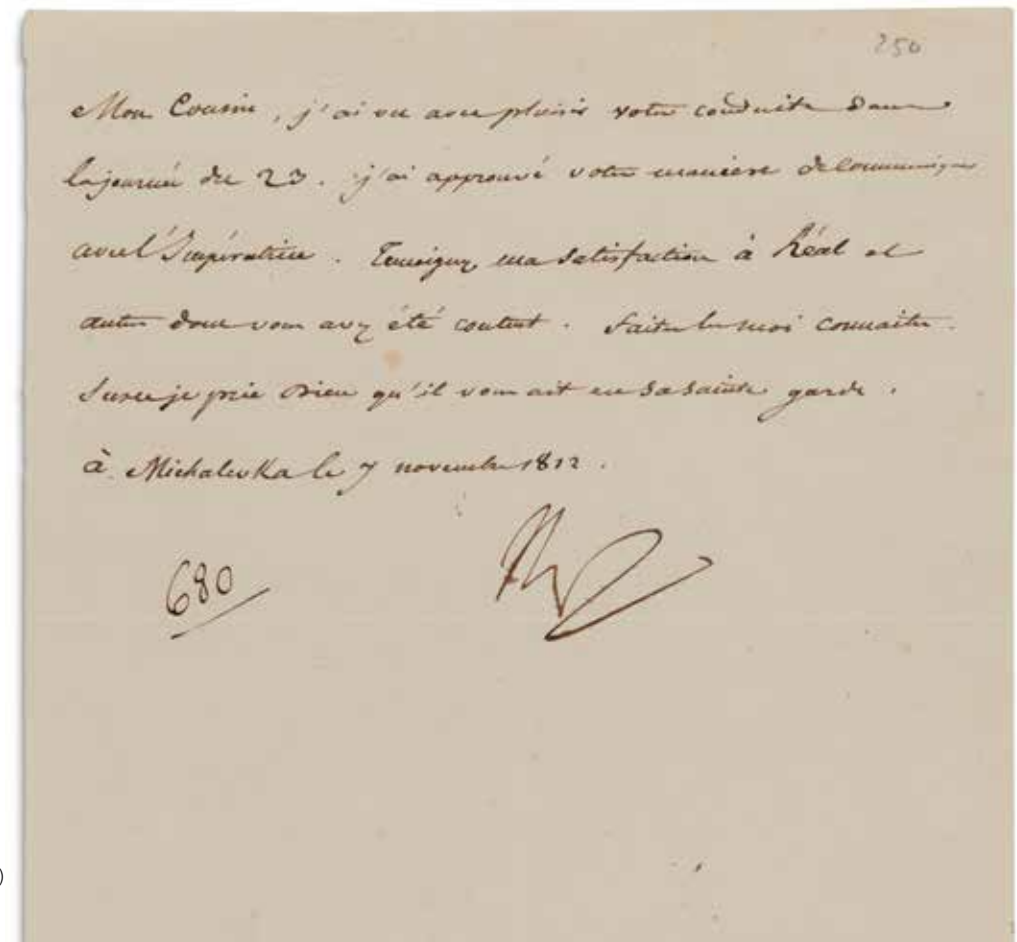 250
Mon Cousin, j'ai vu avec plaisir votre conduite dans
la journée du 23. j'ai approuvé votre manière de communiquer
avec l'Impératrice. Temoignez ma satisfaction à Réal et
autres dont vous avez été content. faites les moi connaitre.
Sur ce je prie Dieu qu'il vous ait en sa sainte garde.
à Michalevka le 7 novembre 1812.
680
)